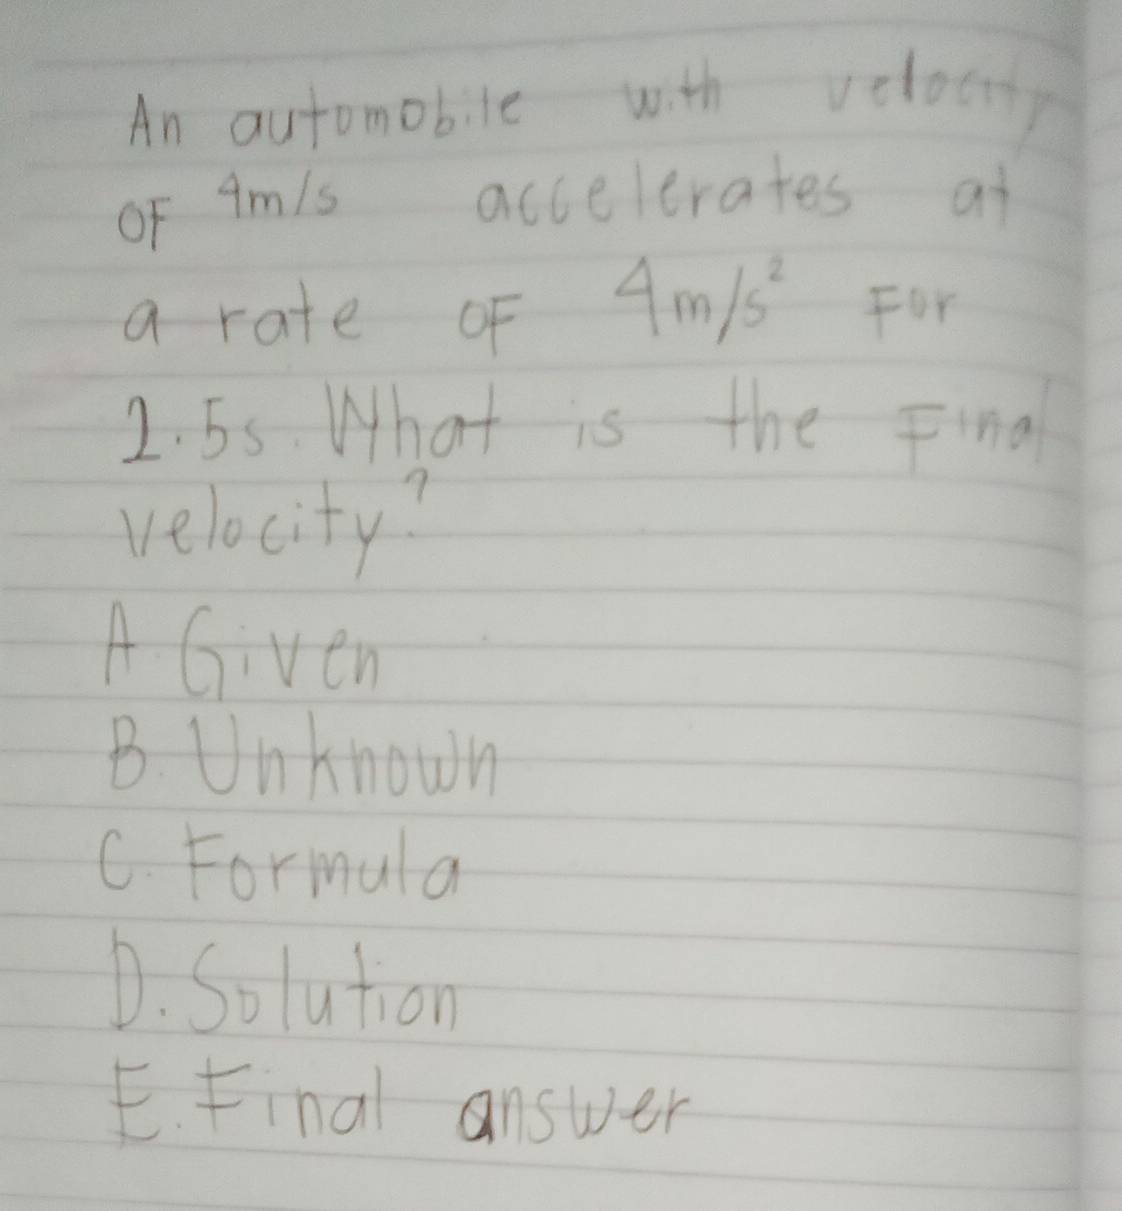 An automobile with velocity
OF 4m/s accelerates at
a rate OF 4m/s² For
2.5s. What is the Final
velocity?
A. Given
B. Unknown
C. Formula
D. Solution
E. Final answer